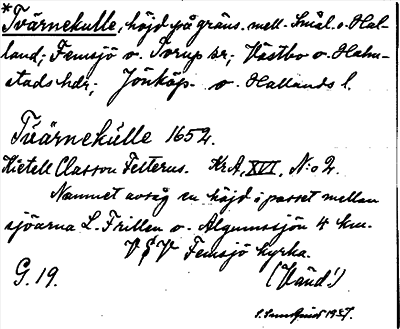 *Tvärnekulle, höjd på gräns. mell. Smål. o. Hal-
land; Femsjö o. Torup sr; Västbo o. Halm-
stads hdr; Jönköp. o. Hallands l.
Tvärnekulle 1652.
Kietell Classon Felterus. KrA, XVI, N:o 2.
Namnet avsåg en höjd i passet mellan
sjöarna L. Frillen o. Älgunnssjön 4 km.
V § V Femsjö kyrka.
G. 19. (Vänd!)
1937.